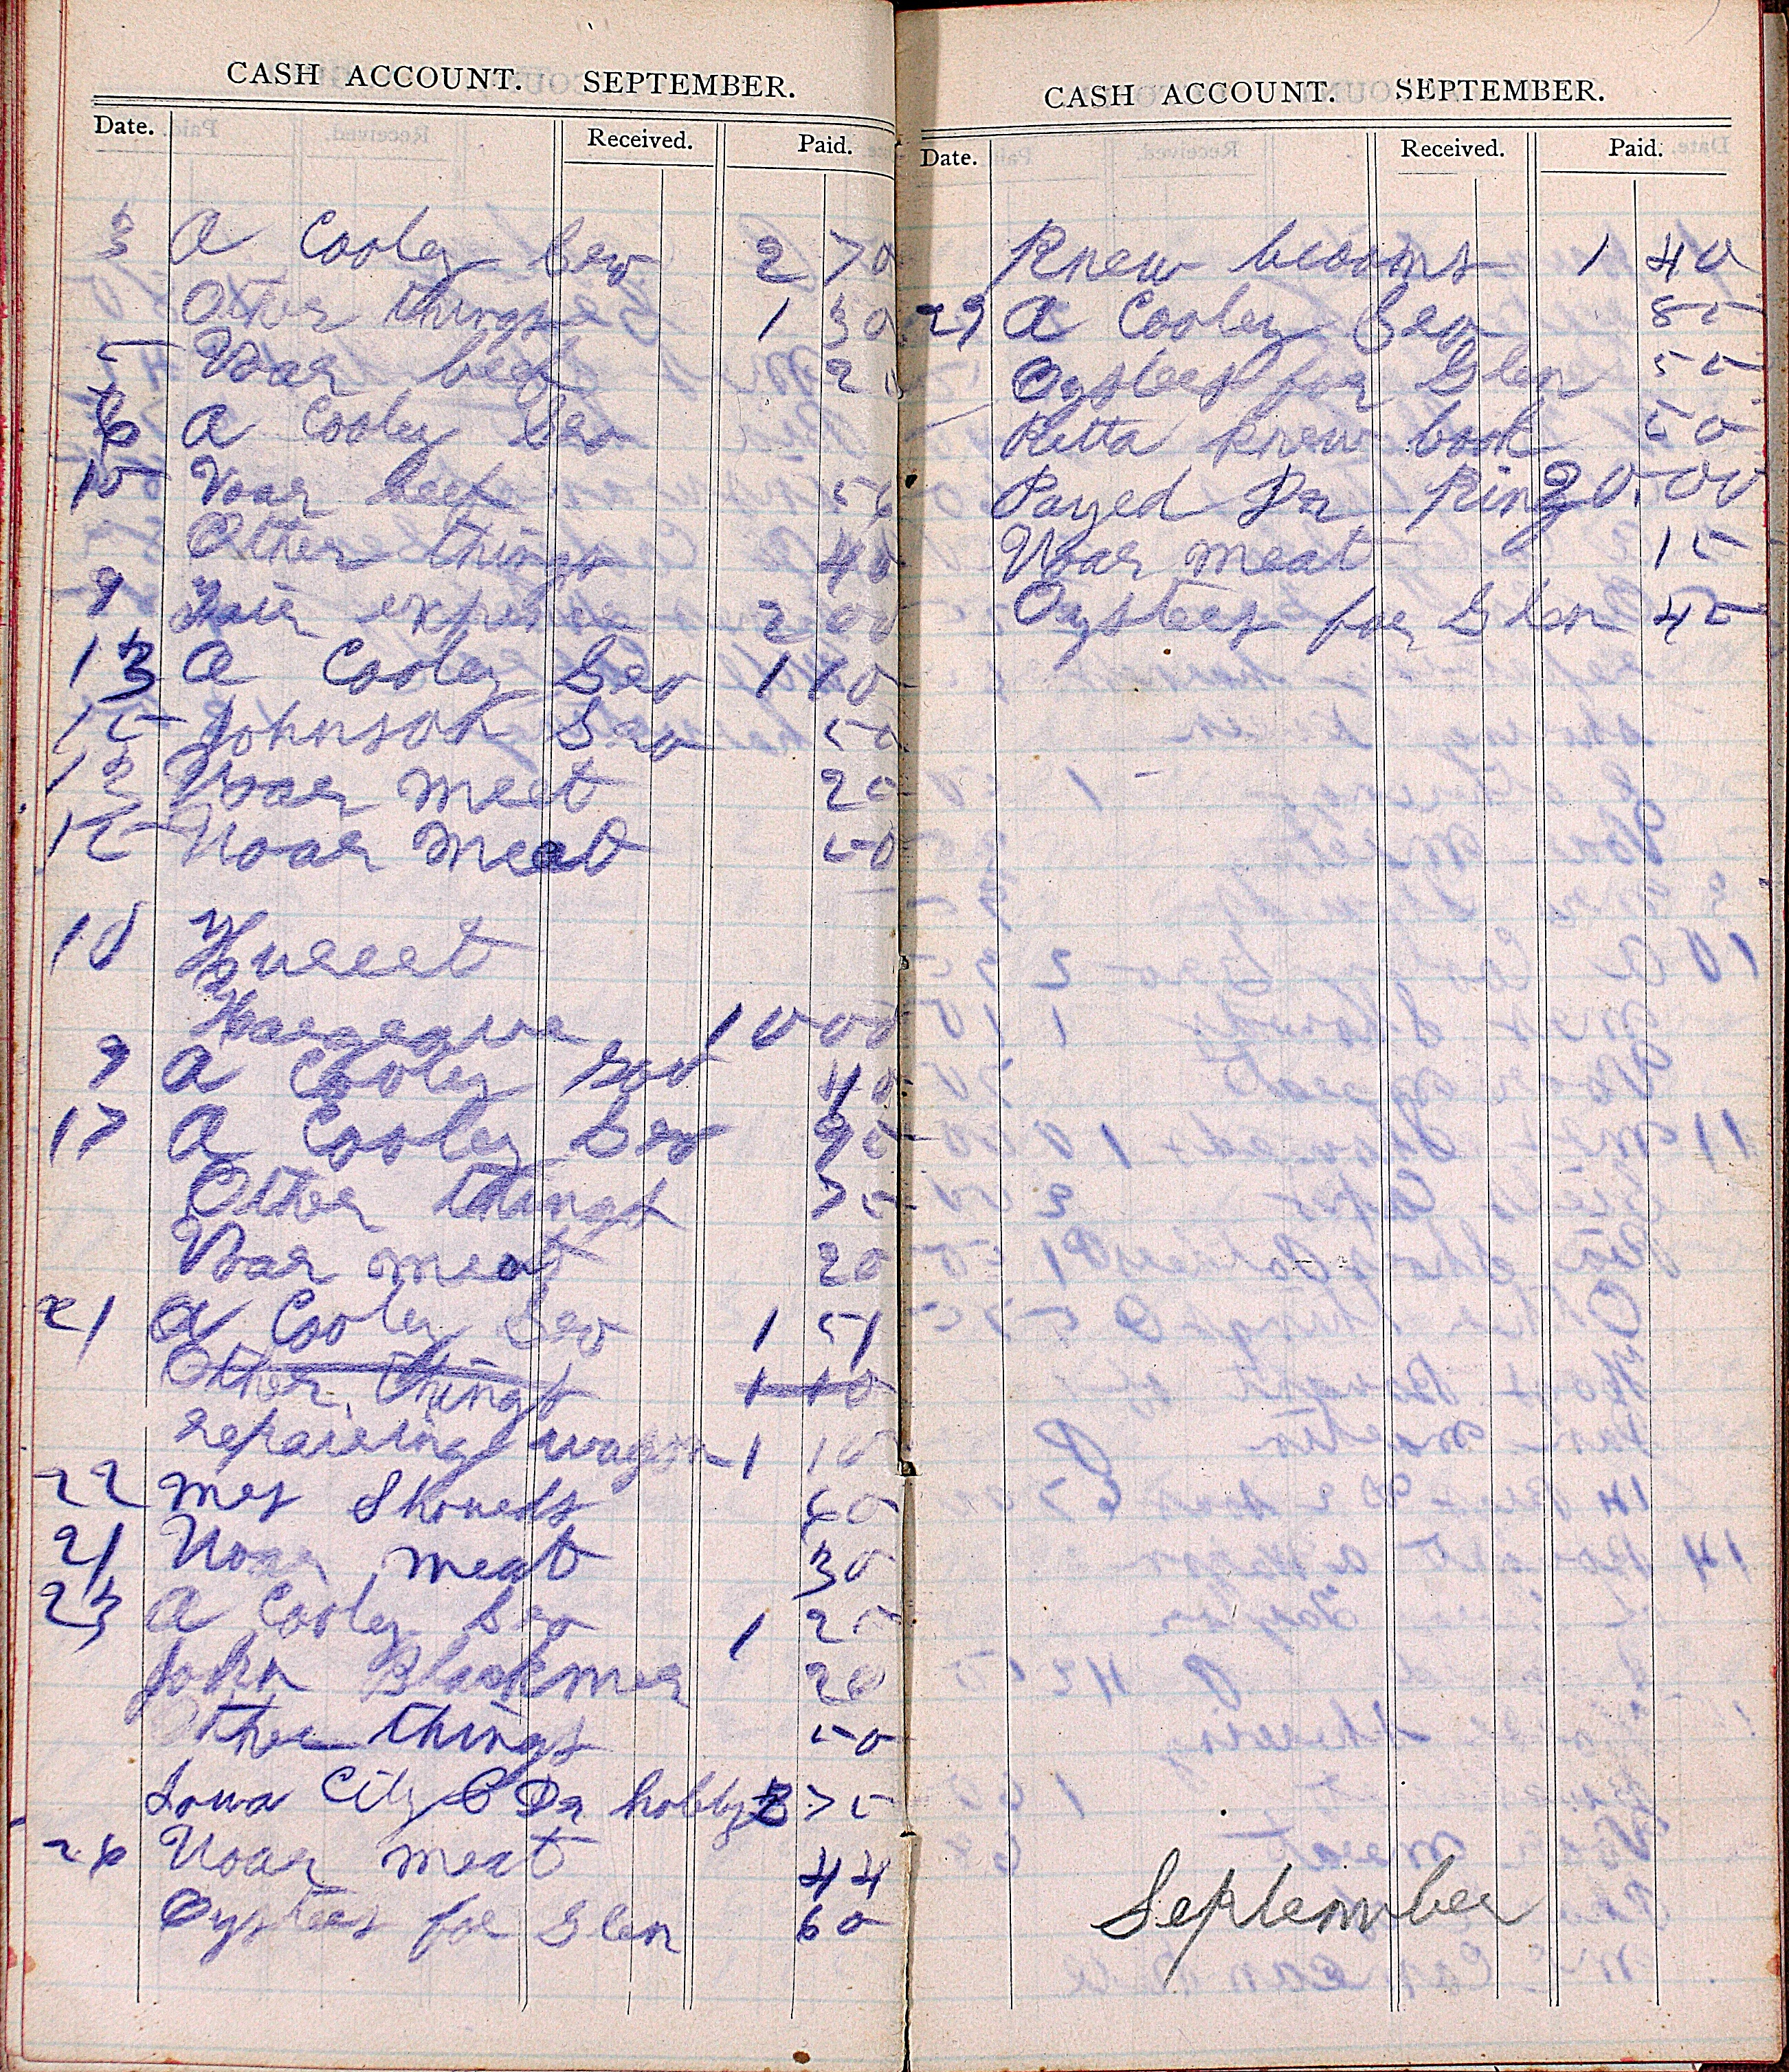 CASH ACCOUNT. SEPTEMBER.
Date. Received. Paid.
3 A Cooley Gro 2 70
Other things 1 30
5 Voar beef 20
6 A Cooley Gro
10 Voar beef 50
Other things 40
9 Fair expence 2 00
13 A Cooley Gro 1 10
15 Johnson Gro 50
12 Voar meet 20
15 Voar meat 50
10
10 00
9 A Cooley Gro 40
17 A Cooley Gro 90
Other things 75
Voar meat 20
21 A Cooley Gro 1 51
Other things 1 10
repairing wagon 1 10
22 Mrs 60
21 Voar meat 30
23 A Cooley Gro 1 25
John Blackmer 20
Other things 50
Iowa City Dr 75
26 Voar meat 44
Oysters for Glen 60
CASH ACCOUNT. SEPTEMBER.
Date. Received. Paid.
Knew brooms 1 40
29 A Cooley Gro 85
Oysters for Glen 55
Retta Knew book 50
Payed Dr, King 20.00
Voar meat 15
Oysters for Glen 45
September